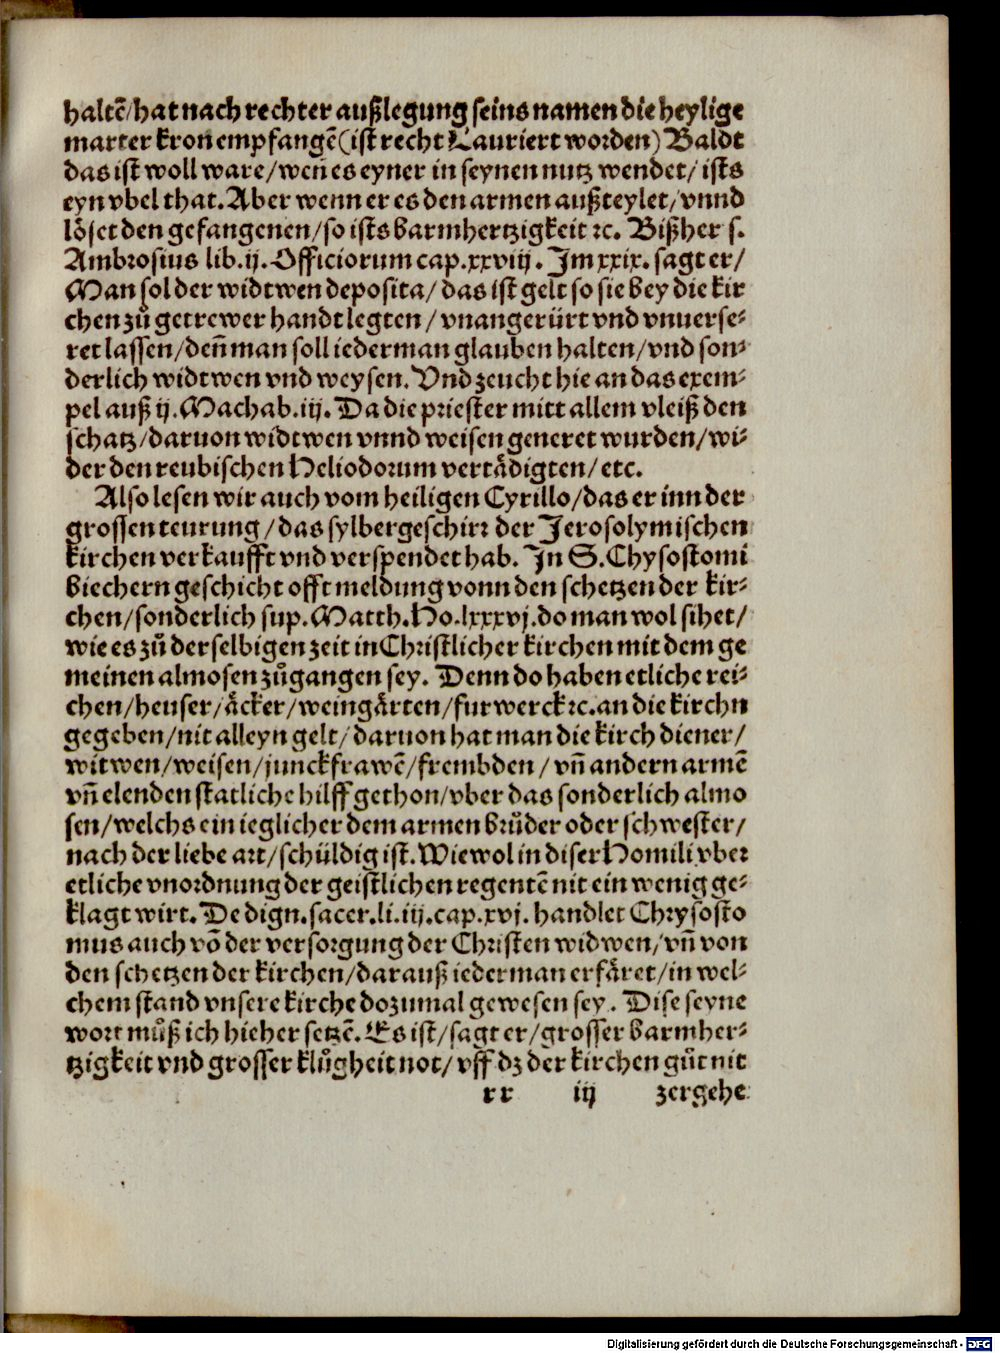 haltē/hat nach rechter außlegung seins namen die heylige
marter kron empfangē(ist recht Lauriert worden) Baldt
das ist woll ware/weñ es eyner in seynen nutz wendet/ ists
eyn vbel that. Aber wenn er es den armen außteylet/ vnnd
löset den gefangenen/so ists barmhertzigkeit ⁊c. Bißher s.
Ambrosius lib.ij. Officiorum cap.xxviij. Im xxix. sagt er/
Man sol der widtwen deposita/ das ist gelt so sie bey die kir
chen zů getrewer handt legten / vnangerürt vnd vnuerse⸗
ret lassen/deñ man soll iederman glauben halten/vnd son⸗
derlich widtwen vnd weysen. Vnd zeucht hie an das exem⸗
pel auß ij. Machab.iij. Da die priester mitt allem vleiß den
schatz/daruon widtwen vnnd weisen generet wurden/wi⸗
der den reubischen Heliodorum vertädigten/ etc.
Also lesen wir auch vom heiligen Cyrillo/das er inn der
grossen teurung/das sylbergeschirr der Jerosolymischen
kirchen verkaufft vnd verspendet hab. In S.Chysostomi
biechern geschicht offt meldung vonn den schetzen der kir⸗
chen/sonderlich sup. Matth.Ho.lxxxvj.do man wol sihet/
wie es zů der selbigen zeit in Christlicher kirchen mit dem ge
meinen almosen zůgangen sey. Denn do haben etliche rei⸗
chen/heuser/äcker/weingärten/furwerck ⁊c.an die kirchn
gegeben/nit alleyn gelt/ daruon hat man die kirch diener/
witwen/weisen/junckfrawē/frembden / vñ andern armē
vñ elenden statliche hilff gethon/vber das sonderlich almo
sen/welchs ein ieglicher dem armen brůder oder schwester/
nach der liebe art/schüldig ist. Wiewol in diser Homili vber
etliche vnordnung der geistlichen regentē nit ein wenig ge⸗
klagt wirt. De dign.sacer.li.iij.cap.xvj. handlet Chrysosto
mus auch vō der versorgung der Christen widwen/vñ von
den schetzen der kirchen/darauß iederman erfäret/in wel⸗
chem stand vnsere kirche dozumal gewesen sey. Dise seyne
wort můß ich hieher setzē. Es ist/sagt er/grosser barmher⸗
tzigkeit vnd grosser klůgheit not/ vff dz der kirchen gůt nit
rr iij zergehe
Digitalisierung gefördert durch die Deutsche Forschungsgemeinschaft - DFG